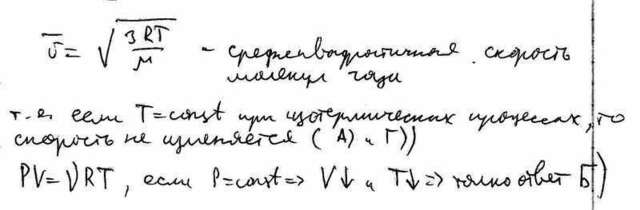 v̅ = √(3RT/μ) - среднеквадратичная скорость
молекул газа
т.е. если T=const при изотермических процессах, то
скорость не изменяется (А) и Г))
PV=νRT, если P=const => V↓ и T↓ => только ответ Б)